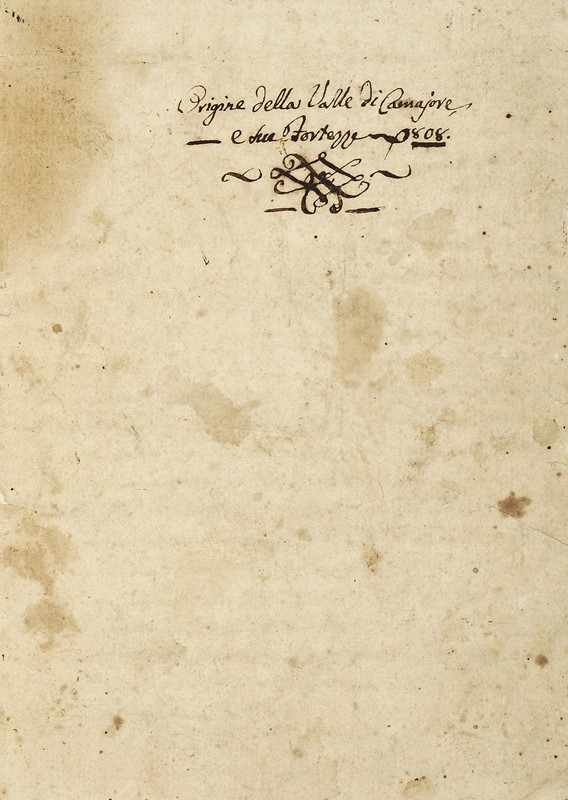 Origine della Valle di Camajore,
— e sue Fortezze — 1808.